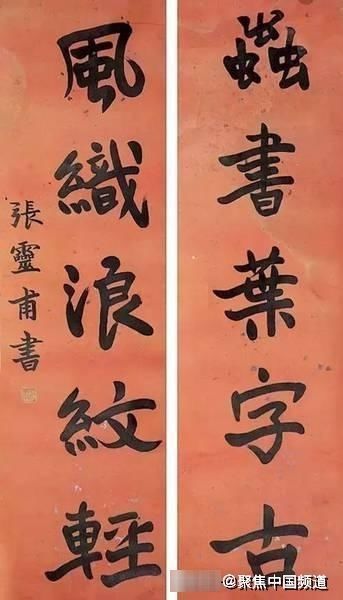 蟲書葉字古
風織浪紋輕
張靈甫書
@聚焦中国频道